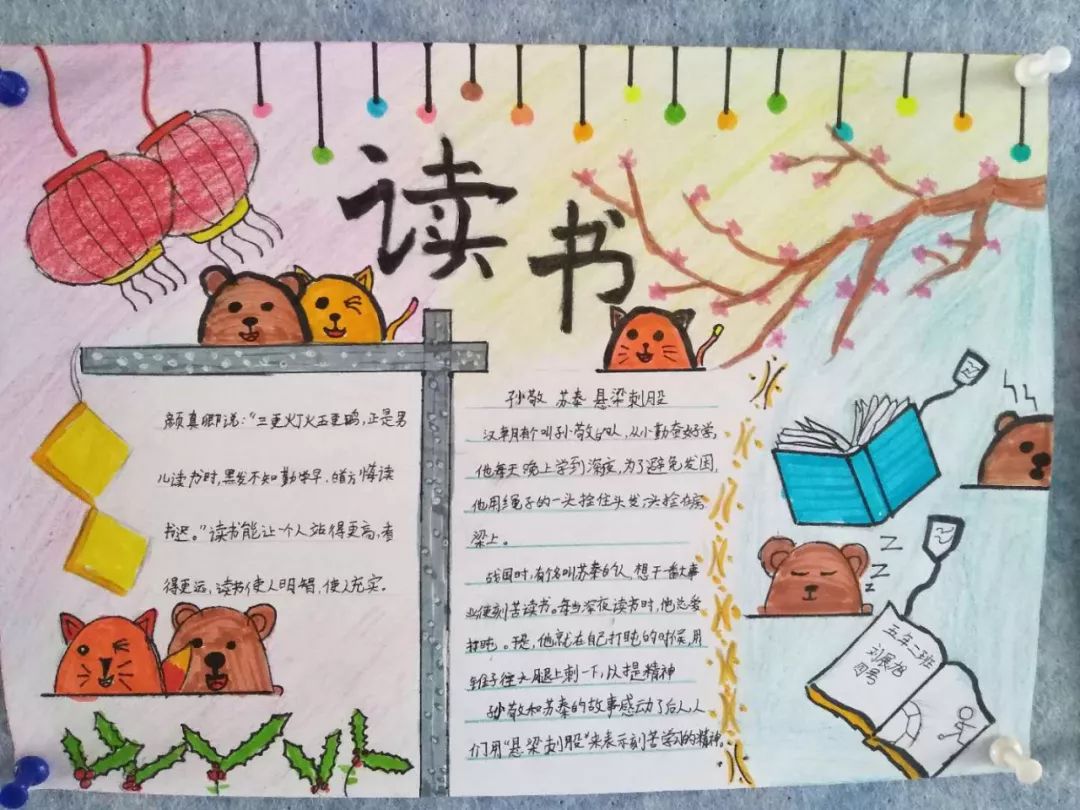 读书
颜真卿说:“三更灯火五更鸡,正是男
儿读书时,黑发不知勤学早,白首方悔读
书迟。”读书能让一个人站得更高,看
得更远,读书使人明智,使人充实。
孙敬 苏秦 悬梁刺股
汉朝有个叫孙敬的人,从小勤奋好学,
他每天晚上学到深夜,为了避免发困,
他用绳子的一头拴住头发,一头拴在房
梁上。
战国时,有个名叫苏秦的人,想干一番大事
业便刻苦读书。每当深夜读书时,他总爱
打盹。于是,他就在自己打盹的时候,用
锥子往大腿上刺一下,以提精神
孙敬和苏秦的故事感动了后人,人
们用“悬梁刺股”来表示刻苦学习的精神。
Z
Z
Z
五年二班
刘展旭
四号